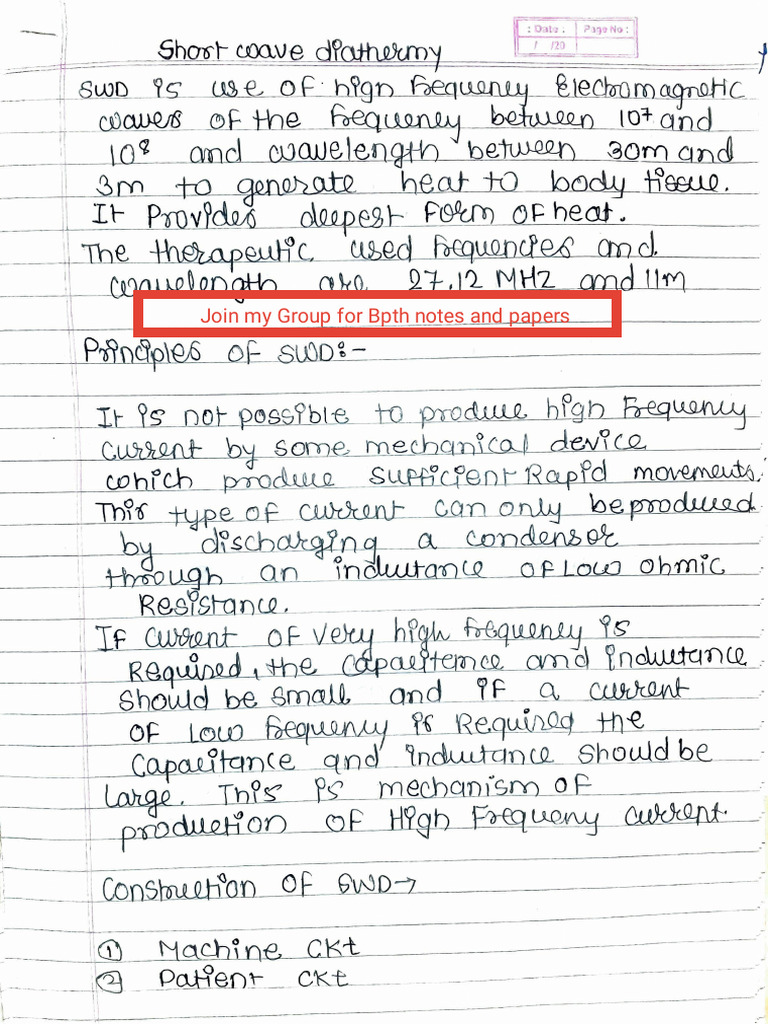 : Date :
Page No :
/ /20
Short wave diathermy
SWD is use of high frequency Electromagnetic
waves of the frequency between 10⁷ and
10⁸ and wavelength between 30m and
3m to generate heat to body tissue.
It Provides deepest form of heat.
The therapeutic used frequencies and
wavelength are 27.12 MHZ and 11m
Join my Group for Bpth notes and papers
Principles of SWD:-
It is not possible to produce high frequency
current by some mechanical device
which produce sufficient Rapid movements.
This type of current can only be produced
by discharging a condensor
through an inductance of Low ohmic
Resistance.
If current of very high frequency is
Required, the capacitance and inductance
should be small and if a current
of Low frequency is Required the
Capacitance and inductance should be
Large. This is mechanism of
production of High Frequeny current.
Construction of SWD→
① Machine Ckt
② Patient Ckt